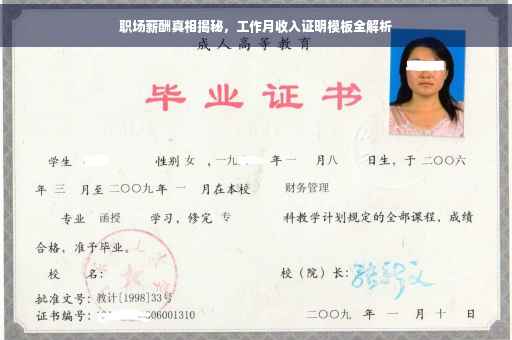 职场薪酬真相揭秘，工作月收入证明模板全解析
成人高等教育
毕业证书
学生 性别 女 ，一九 年一 月八 日生，于二〇〇六
年 三 月至二〇〇九年 一 月在本校 财务管理
专业 函授 学习，修完 专 科教学计划规定的全部课程，成绩
合格，准予毕业。
校 名： 校（院）长：
批准文号：教计[1998]33号
证书编号： 06001310 二〇〇九 年 一 月 十 日